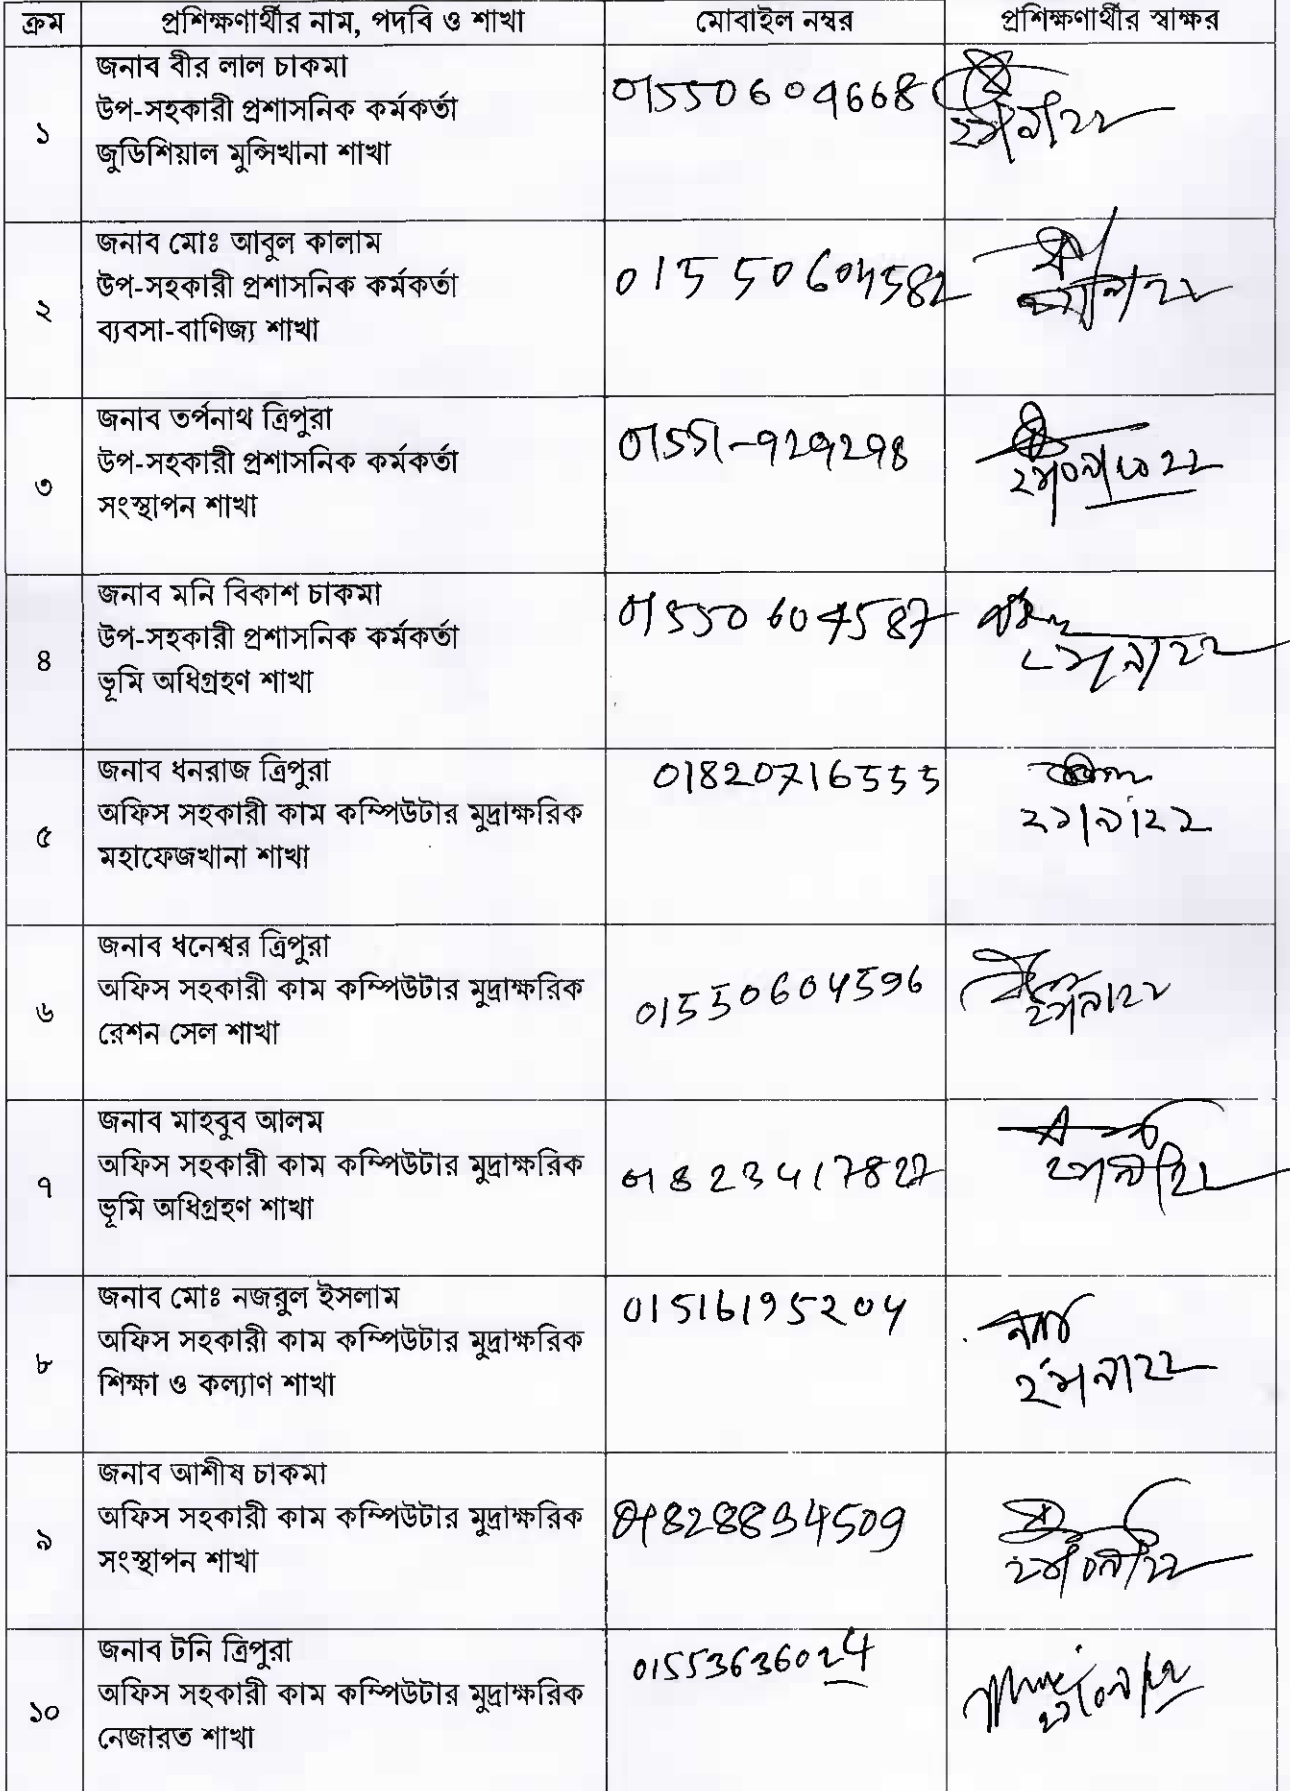 ক্রম প্রশিক্ষণার্থীর নাম, পদবি ও শাখা মোবাইল নম্বর প্রশিক্ষণার্থীর স্বাক্ষর
১
জনাব বীর লাল চাকমা
উপ-সহকারী প্রশাসনিক কর্মকর্তা
জুডিশিয়াল মুন্সিখানা শাখা
২
জনাব মোঃ আবুল কালাম
উপ-সহকারী প্রশাসনিক কর্মকর্তা
ব্যবসা-বাণিজ্য শাখা
01550604582
৩
জনাব তর্পনাথ ত্রিপুরা
উপ-সহকারী প্রশাসনিক কর্মকর্তা
সংস্থাপন শাখা
৪
জনাব মনি বিকাশ চাকমা
উপ-সহকারী প্রশাসনিক কর্মকর্তা
ভূমি অধিগ্রহণ শাখা
01550604587
৫
জনাব ধনরাজ ত্রিপুরা
অফিস সহকারী কাম কম্পিউটার মুদ্রাক্ষরিক
মহাফেজখানা শাখা
01820716555
৬
জনাব ধনেশ্বর ত্রিপুরা
অফিস সহকারী কাম কম্পিউটার মুদ্রাক্ষরিক
রেশন সেল শাখা
01550604596
৭
জনাব মাহবুব আলম
অফিস সহকারী কাম কম্পিউটার মুদ্রাক্ষরিক
ভূমি অধিগ্রহণ শাখা
01823417827
৮
জনাব মোঃ নজরুল ইসলাম
অফিস সহকারী কাম কম্পিউটার মুদ্রাক্ষরিক
শিক্ষা ও কল্যাণ শাখা
01516195204
৯
জনাব আশীষ চাকমা
অফিস সহকারী কাম কম্পিউটার মুদ্রাক্ষরিক
সংস্থাপন শাখা
01828834509
১০
জনাব টনি ত্রিপুরা
অফিস সহকারী কাম কম্পিউটার মুদ্রাক্ষরিক
নেজারত শাখা
01553636024